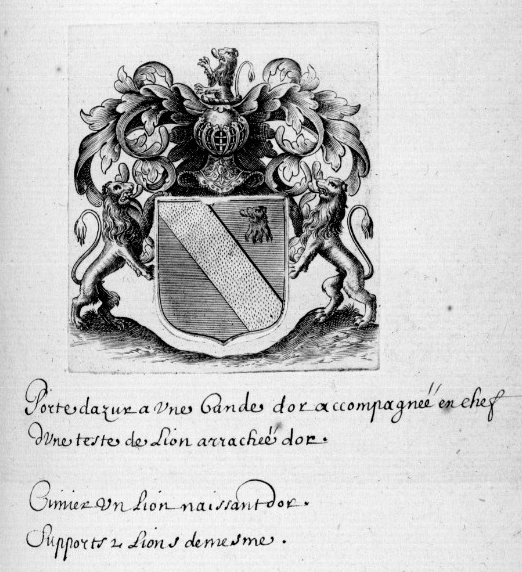 Porte dazur a vne bande dor accompagneé en chef
dvne teste de Lion arracheé dor.
Cimier vn Lion naissant dor.
Supports 2 Lions demesme.